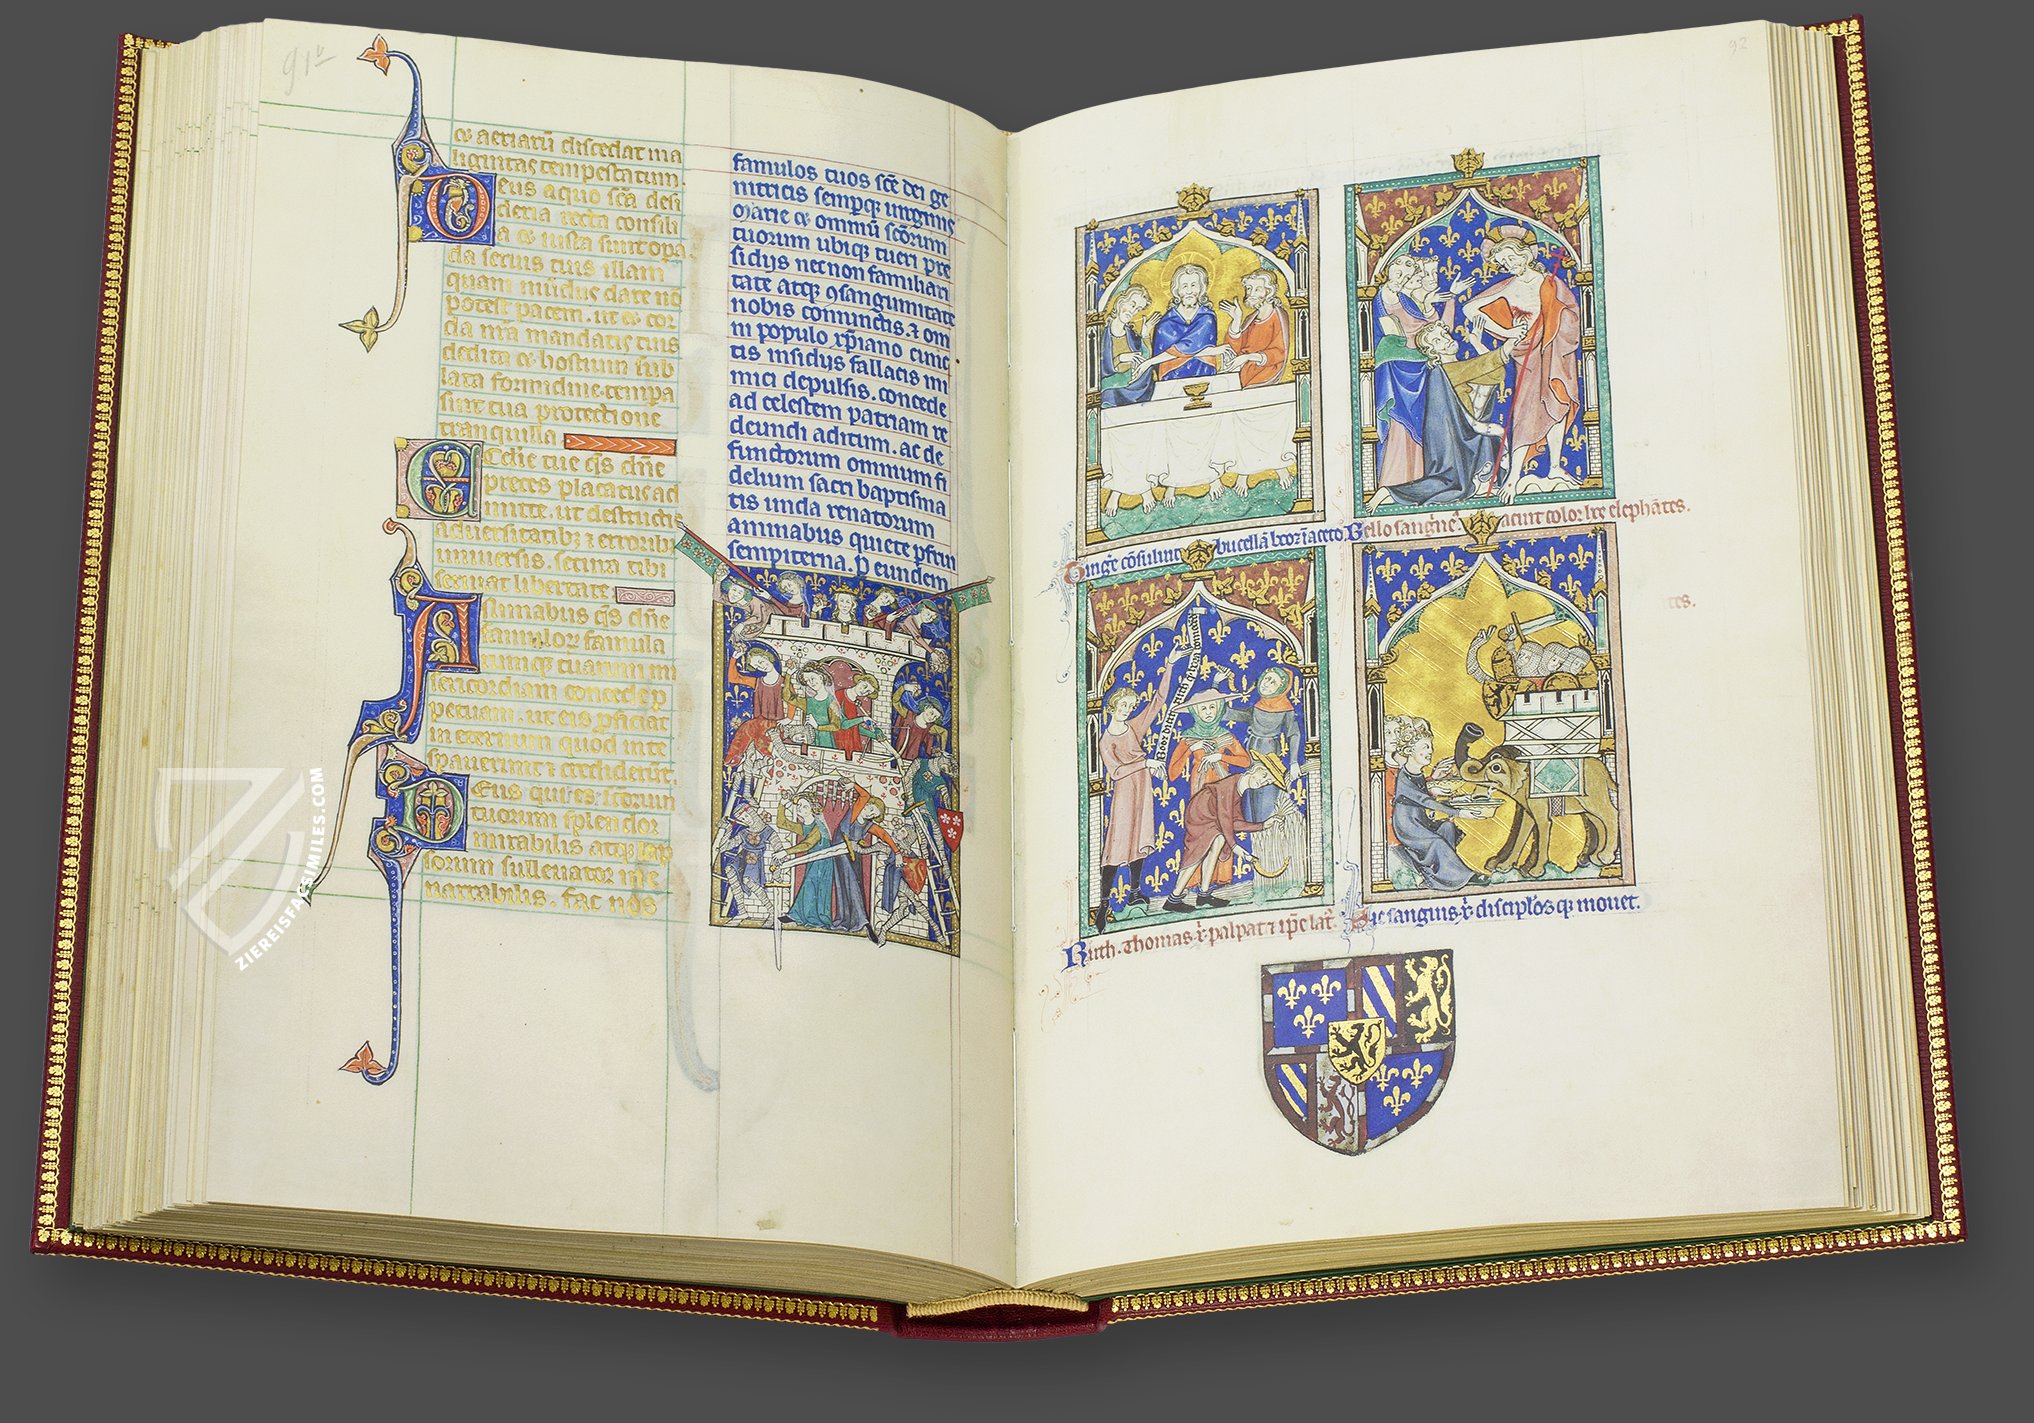 91v
& aeriarū discedat ma
lignitas tempestatum.
Deus a quo scā desi
deria recta consili
a & iusta sunt opa
da seruis tuis illam
quam mūdus dare nō
potest pacem. ut & cor
da nr̄a mandatis tuis
dedita & hostium sub
lata formidine. tempa
sint tua protectione
tranquilla
Ecclīe tue qs dn̄e
preces placatus ad
mitte. ut destructis
aduersitatibꝫ & erroribꝫ
uniuersis. secura tibi
seruiat libertate.
Animabus qs dn̄e
famuloꝝ famula
rumqꝫ tuarum mi
sericordiam concede p
petuam. ut eis pficiat
in eternum quod in te
spauerunt & crediderūt.
Deus qui es scōrum
tuorum splendor
mirabilis atqꝫ lap
sorum subleuator ine
narrabilis. fac nos
famulos tuos scē dei ge
nitricis sempqꝫ uirginis
Marie & omniū scōrum
tuorum ubiqꝫ tueri pre
sidijs necnon familiari
tate atqꝫ ɔsanguinitate
nobis coniunctis & om
ni populo xp̄iano cunc
tis insidijs fallacis ini
mici depulsis. concede
ad celestem patriam re
deundi aditum. ac de
functorum omnium fi
delium sacri baptisma
tis unda renatorum
animabus quiete pfrui
sempiterna. p eundem
92
Tingꝰe cōsulunt bucellā booz ī aceto. Bello sangͥneꝰ acuit color hre elephātes.
tes.
Ruth. Thomas xͬ palpat & ip̄e lat.ͬ Sic sanguis xͬ disciplōs qꝫ mouet.
ZIEREISFACSIMILES.COM